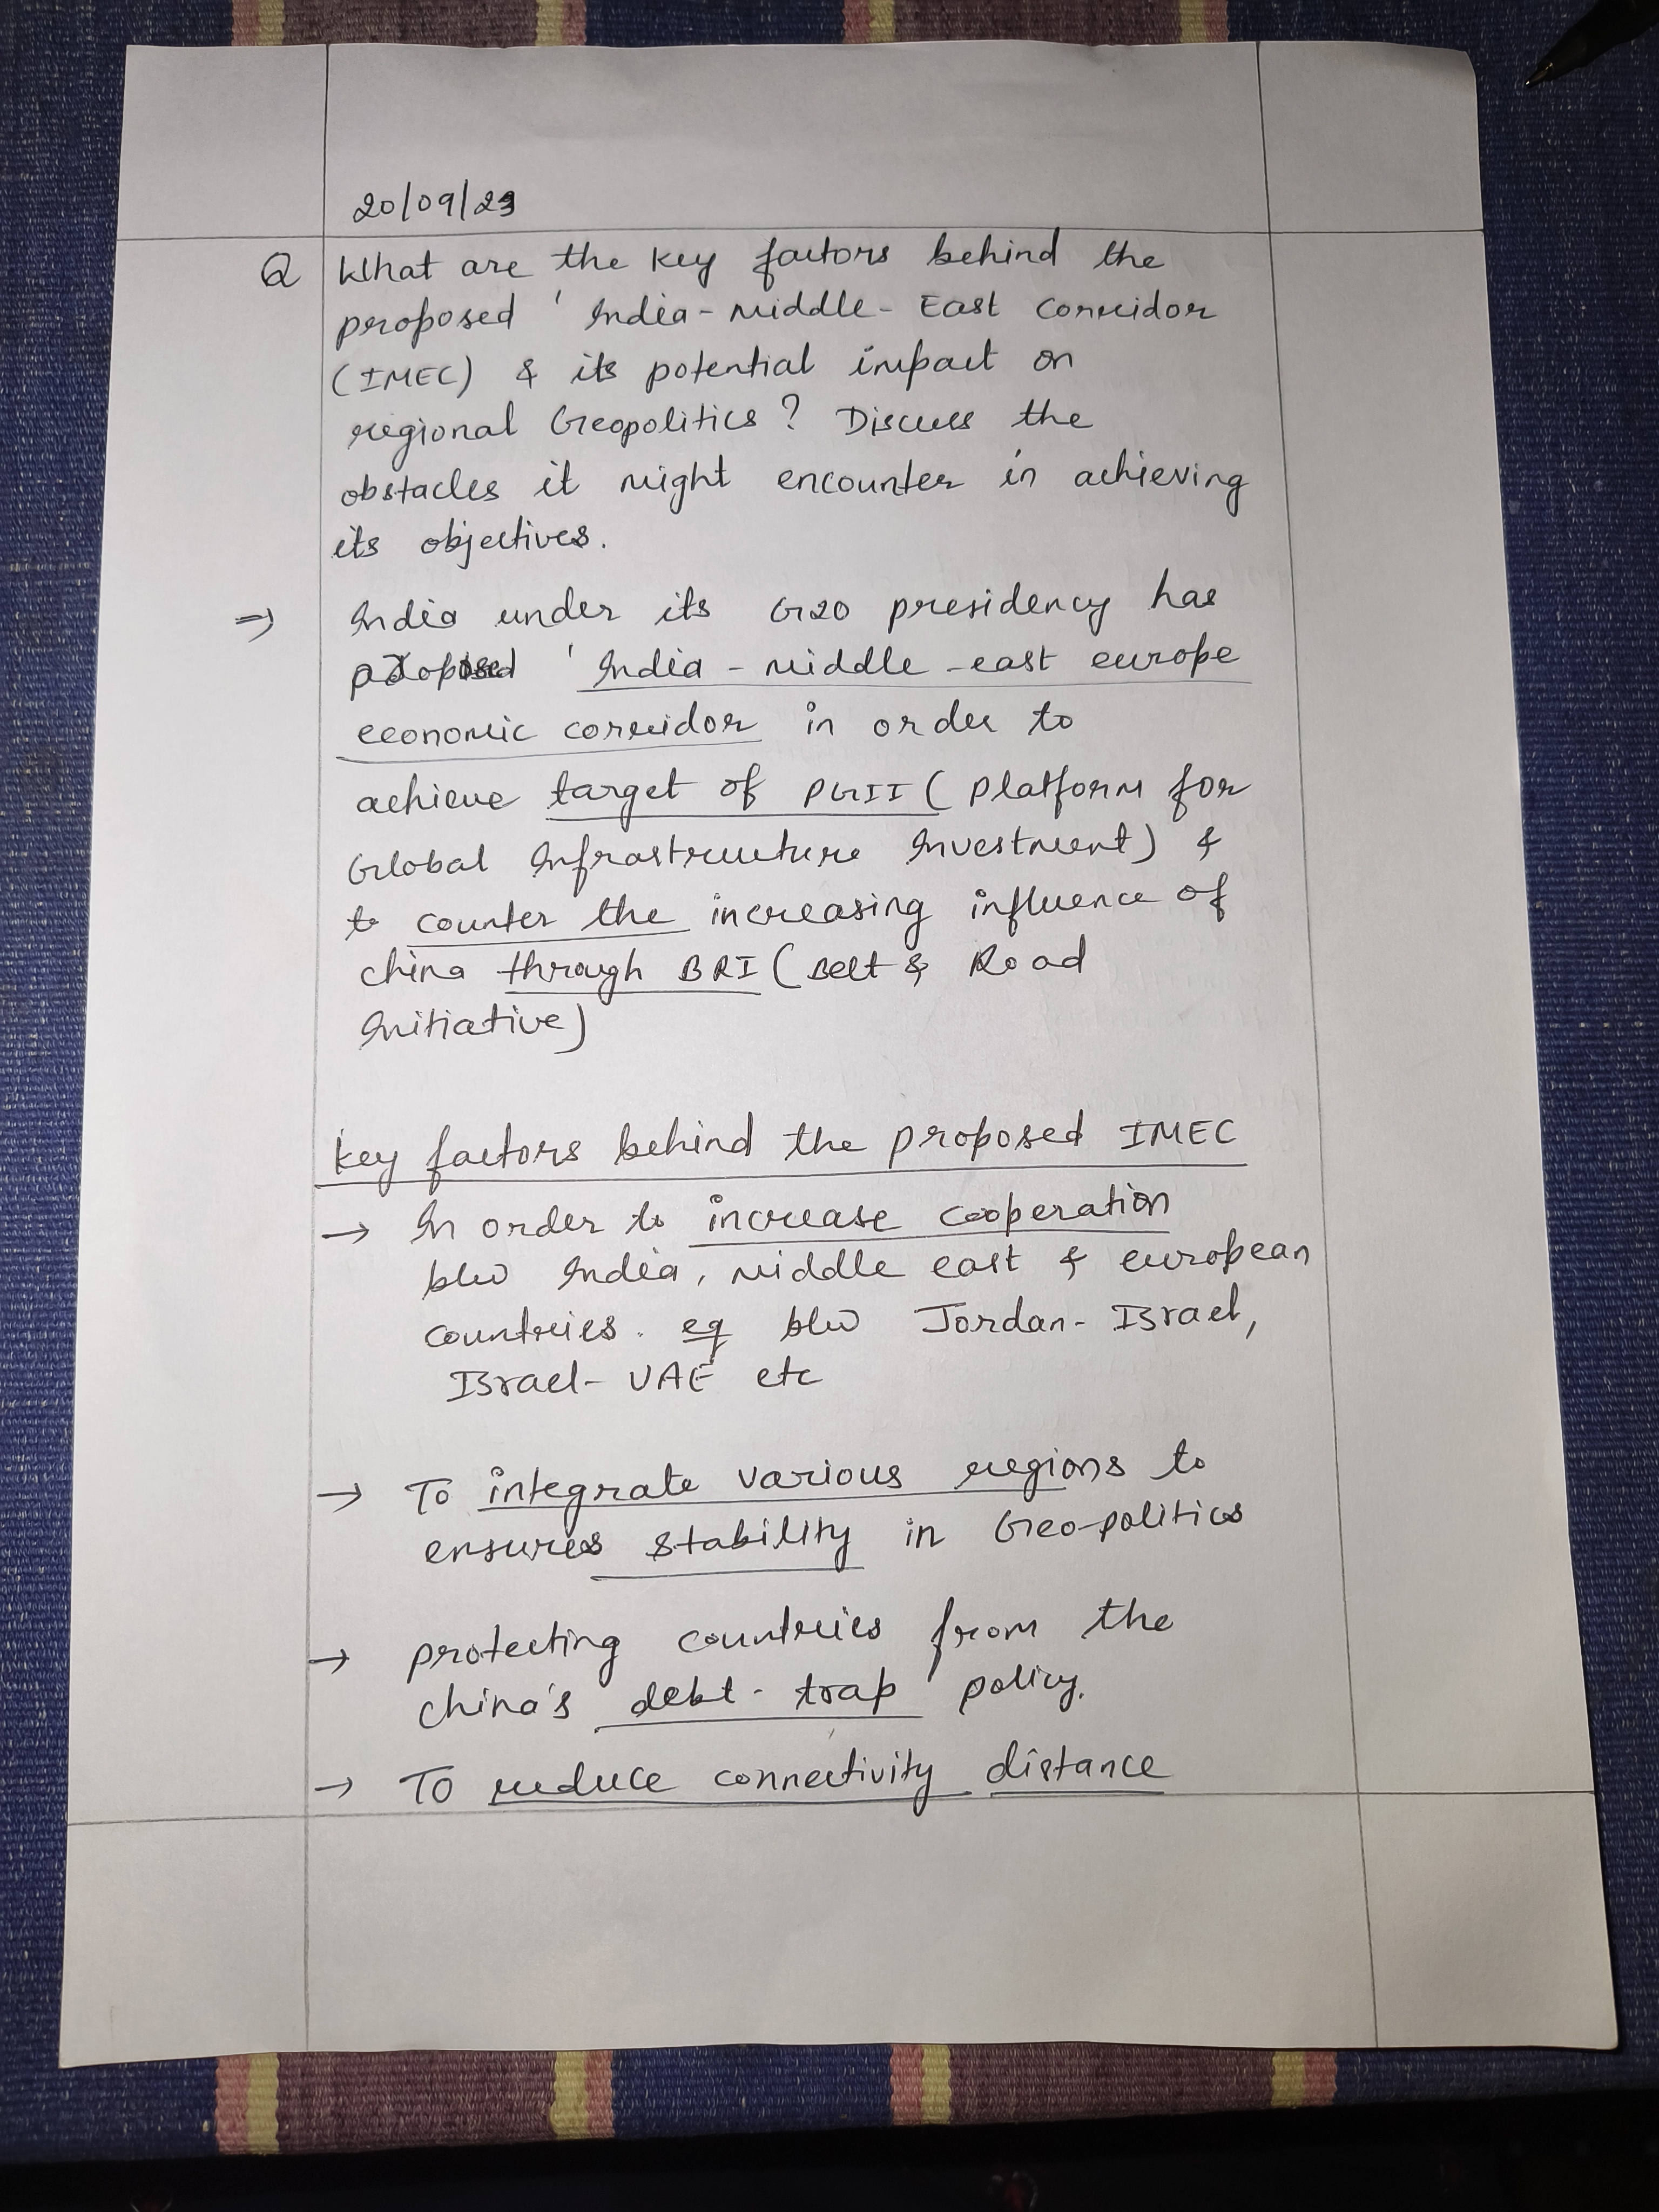 20/09/23
Q What are the key factors behind the
proposed 'India-Middle-East Corridor
(IMEC) & its potential impact on
regional Geopolitics? Discuss the
obstacles it might encounter in achieving
its objectives.
⇒ India under its G20 presidency has
proposed 'India-middle-east europe
economic corridor in order to
achieve target of PGII (Platform for
Global Infrastructure Investment) &
to counter the increasing influence of
china through BRI (Belt & Road
Initiative)
key factors behind the proposed IMEC
→ In order to increase cooperation
blw India, middle east & european
countries. eg blw Jordan-Israel,
Israel-UAE etc
→ To integrate various regions to
ensures stability in Geo-politics
→ protecting countries from the
china's debt-trap policy.
→ To reduce connectivity distance